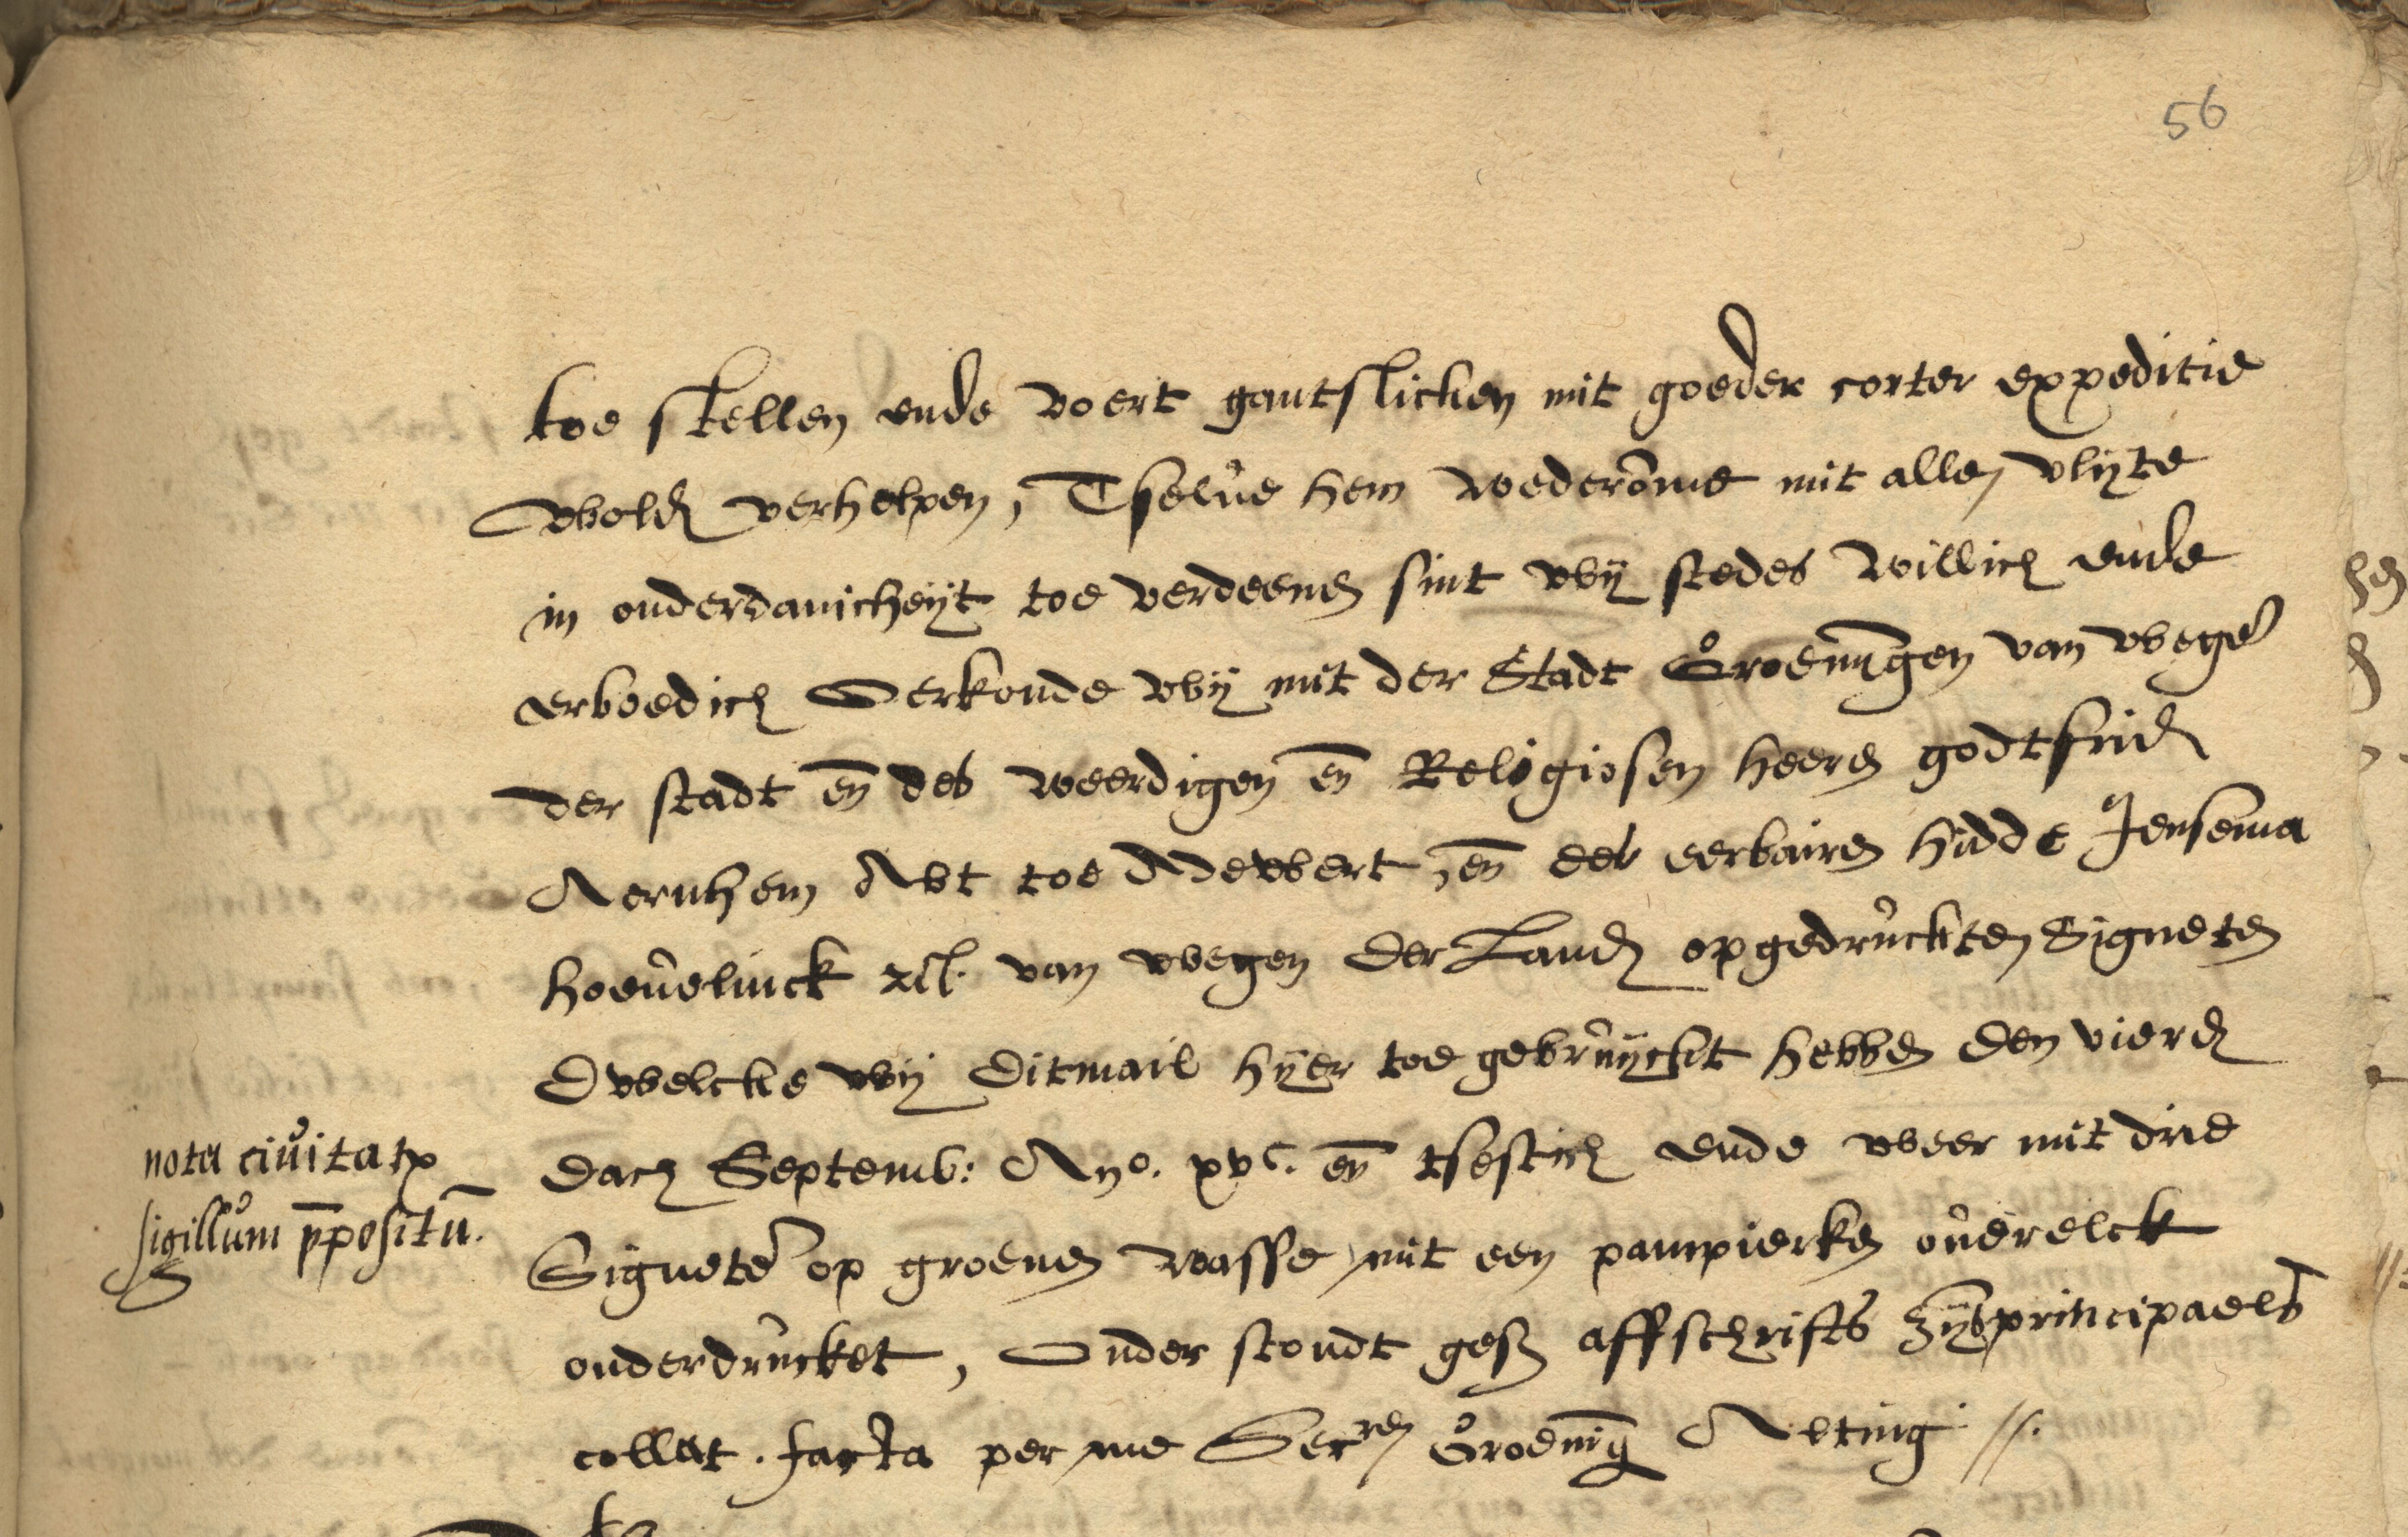 56
toe stellen ende voert gantslicken mit goeder corter expeditie
wold verhelpen, Tselue hem wederome mit allen vlyte
in onderdanicheyt toe verdeenen sint wy stedes willich ende
erboedich Oerkonde wy mit der Stadt Groeningen van wegen
der stadt en des weerdigen en Religiosen heeren godtfrid
Aernhem Abt toe Adewert, en des eerbairen hidde Jensema
hoeuelinck etc. van wegen der Land opgedruckten Signeten
Dwelcke wy ditmail hyer toe gebruyckt hebben den vierd
dach Septemb: Ano. xvc. en tsestich ende weer mit drie
nota ciuitatis
sigillum prepositu.
Signeten op groenen wasse mit een pampierken ouerelck
onderdrucket, Onder stondt gesz affschrifts zijns principaels
collat. facta per me Secren Groening Alting. //.